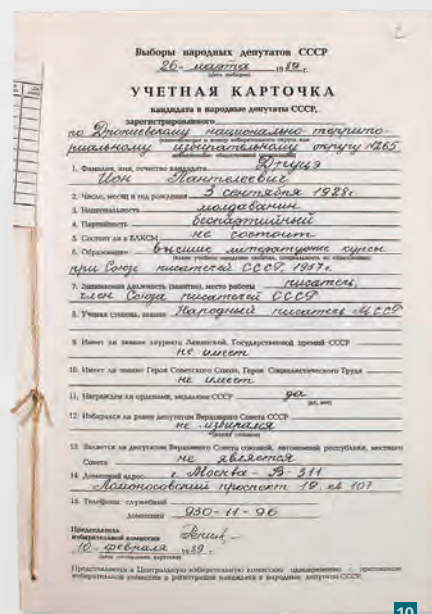 2
Выборы народных депутатов СССР
26 марта 1989 г.
(дата выборов)
УЧЕТНАЯ КАРТОЧКА
кандидата в народные депутаты СССР,
зарегистрированного
по Дрокиевскому национально-террито
риальному избирательному округу №265
1. Фамилия, имя, отчество кандидата Друцэ
Ион Пантелеевич
2. Число, месяц и год рождения 3 сентября 1928г.
3. Национальность молдаванин
4. Партийность беспартийный
5. Состоит ли в ВЛКСМ не состоит
6. Образование высшие литературные курсы
при Союзе писателей СССР, 1957г.
7. Занимаемая должность (занятие), место работы писатель,
член Союза писателей СССР
8. Ученая степень, звание Народный писатель МССР
9. Имеет ли звание лауреата Ленинской, Государственной премий СССР
не имеет
10. Имеет ли звание Героя Советского Союза, Героя Социалистического Труда
не имеет
11. Награжден ли орденами, медалями СССР да
(да, нет)
12. Избирался ли ранее депутатом Верховного Совета СССР
не избирался
13. Является ли депутатом Верховного Совета союзной, автономной республики, местного
Совета не является
14. Домашний адрес г. Москва-В-311
Ломоносовский проспект 19. кв 107
15. Телефоны: служебный
домашний 930-11-96
Председатель
избирательной комиссии
10 февраля 1989 г.
(дата составления карточки)
Представляется в Центральную избирательную комиссию одновременно с протоколом
избирательной комиссии о регистрации кандидата в народные депутаты СССР.
10